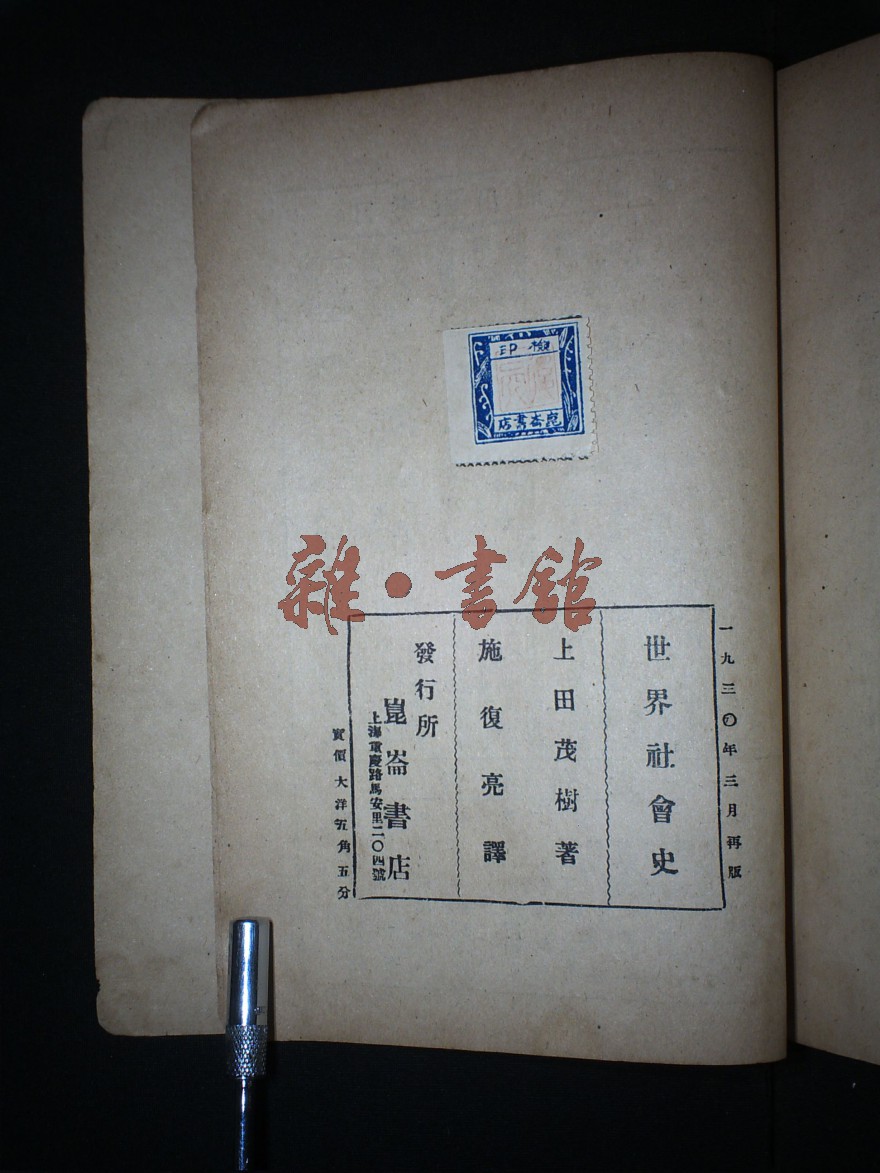 崑崙書店
雜·書館
一九三〇年三月再版
世界社會史
上田茂樹著
施復亮譯
發行所
崑崙書店
上海重慶路馬安里二〇四號
實價大洋五角五分